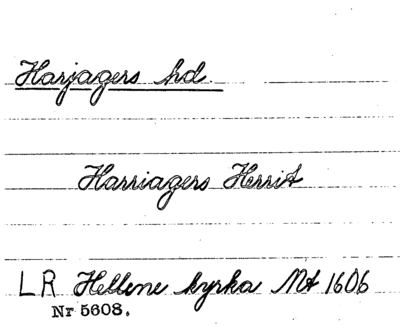 Harjagers hd.
Harriagers Herrit
LR Hellene kyrka Mt 1606
Nr 5608.